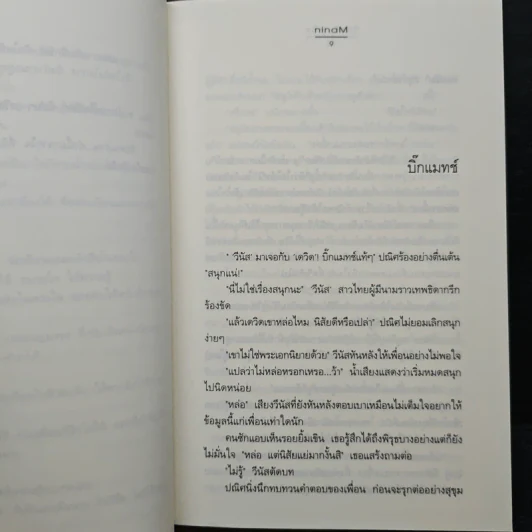 Manin
9
บิ๊กแมทช์
" 'วีนัส' มาเจอกับ 'เดวิด'! บิ๊กแมทช์แท้ๆ" ปณิศร้องอย่างตื่นเต้น
"สนุกแน่!"
"นี่ไม่ใช่เรื่องสนุกนะ" 'วีนัส' สาวไทยผู้มีนามราวเทพธิดากรีก
ร้องขัด
"แล้วเดวิดเขาหล่อไหม นิสัยดีหรือเปล่า" ปณิศไม่ยอมเลิกสนุก
ง่ายๆ
"เขาไม่ใช่พระเอกนิยายด้วย" วีนัสหันหลังให้เพื่อนอย่างไม่พอใจ
"แปลว่าไม่หล่อหรอกเหรอ...ว้า" น้ำเสียงแสดงว่าเริ่มหมดสนุก
ไปนิดหน่อย
"หล่อ" เสียงวีนัสที่ยังหันหลังตอบเบาเหมือนไม่เต็มใจอยากให้
ข้อมูลนี้แก่เพื่อนเท่าใดนัก
คนซักแอบเห็นรอยยิ้มเขิน เธอรู้สึกได้ถึงพิรุธบางอย่างแต่ก็ยัง
ไม่มั่นใจ "หล่อ แต่นิสัยแย่มากงั้นสิ" เธอแสร้งถามต่อ
"ไม่รู้" วีนัสตัดบท
ปณิศนิ่งนึกทบทวนคำตอบของเพื่อน ก่อนจะรุกต่ออย่างสุขุม